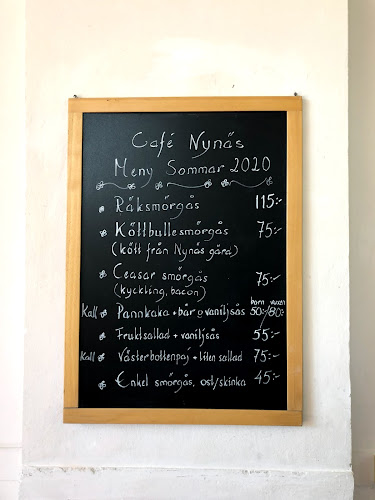 Café Nynäs
Meny Sommar 2020
Räksmörgås 115:-
Köttbullesmörgås 75:-
(kött från Nynäs gård)
Ceasar smörgås 75:-
(kyckling, bacon)
barn vuxen
Kall Pannkaka + bär o vaniljsås 50:-/80:-
Fruktsallad + vaniljsås 55:-
Kall Västerbottenpaj + liten sallad 75:-
Enkel smörgås, ost/skinka 45:-